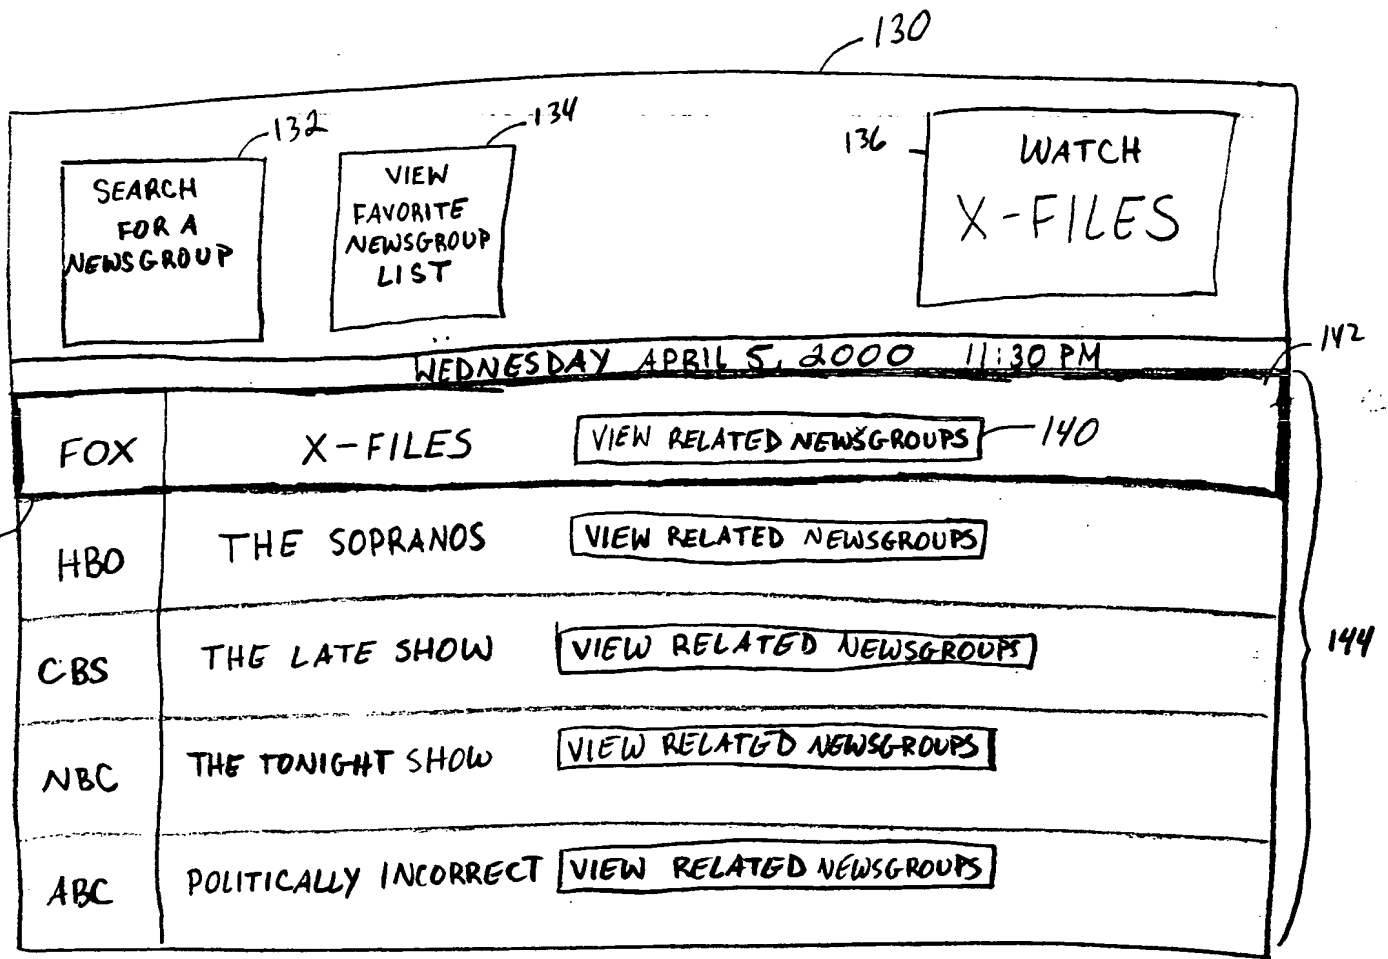 130
132
134
136
SEARCH
FOR A
NEWSGROUP
VIEW
FAVORITE
NEWSGROUP
LIST
WATCH
X-FILES
142
WEDNESDAY APRIL 5, 2000 11:30 PM
FOX X-FILES VIEW RELATED NEWSGROUPS 140
HBO THE SOPRANOS VIEW RELATED NEWSGROUPS
144
CBS THE LATE SHOW VIEW RELATED NEWSGROUPS
NBC THE TONIGHT SHOW VIEW RELATED NEWSGROUPS
ABC POLITICALLY INCORRECT VIEW RELATED NEWSGROUPS